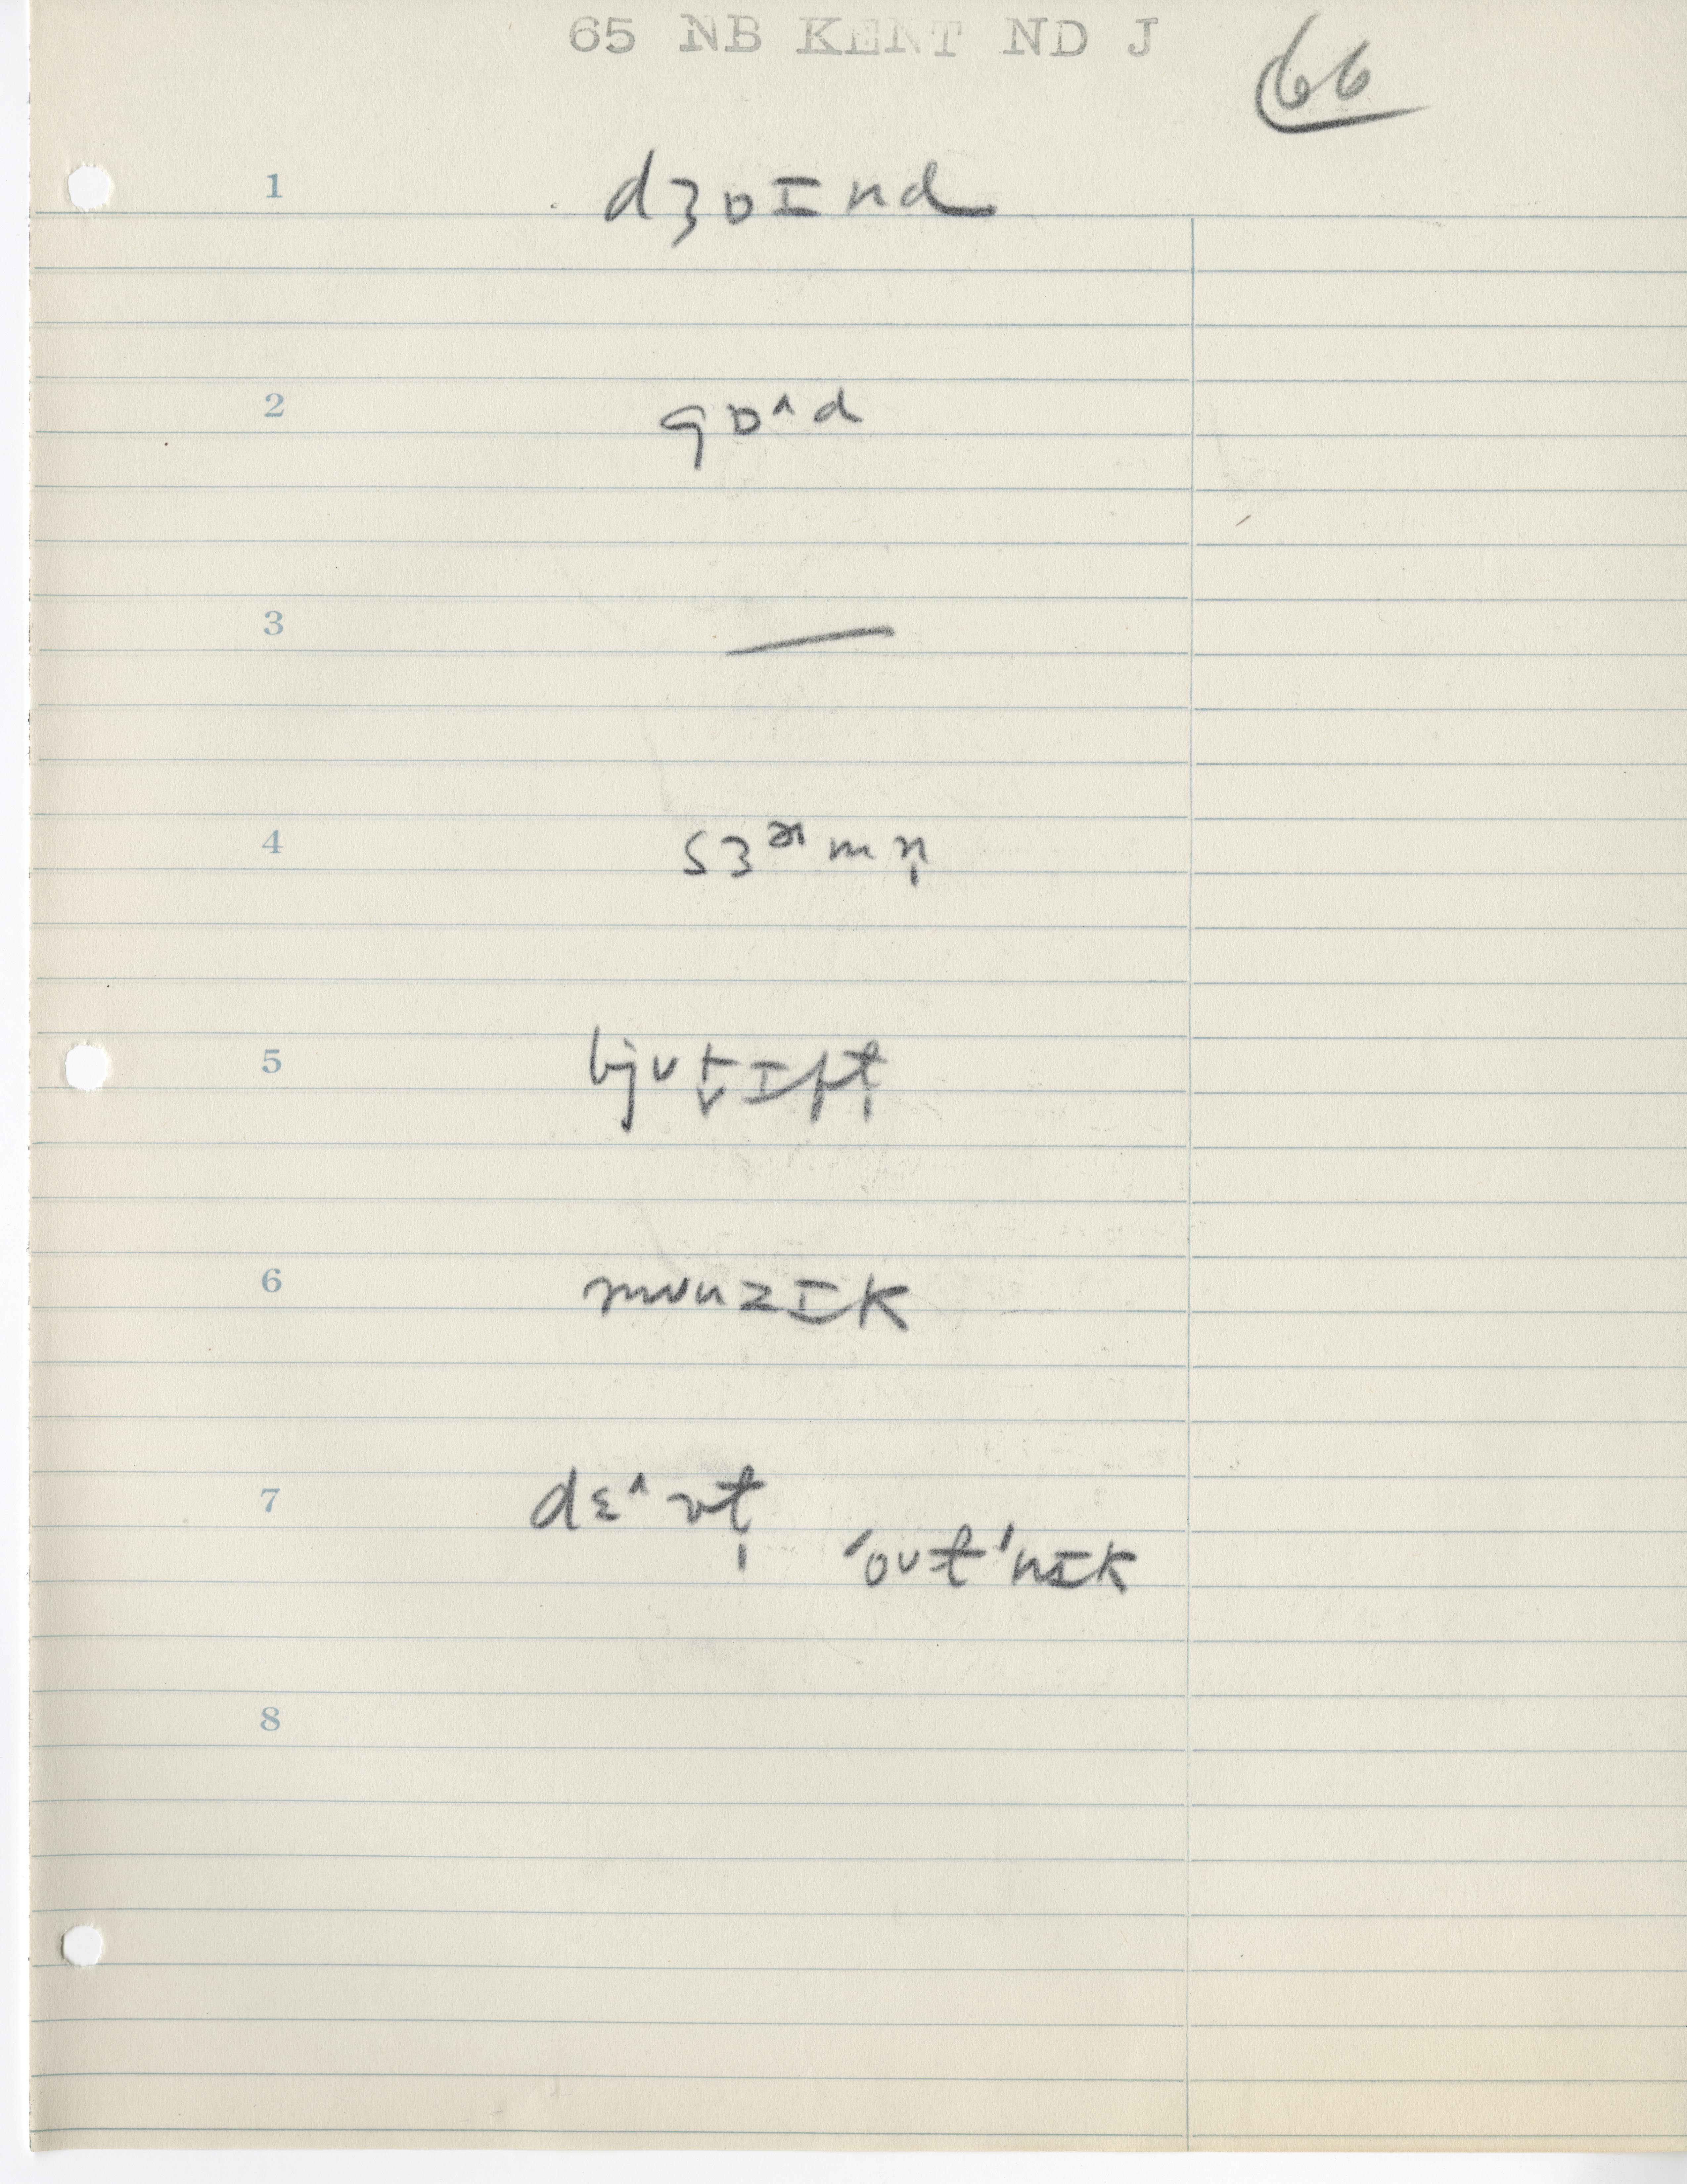 65 NB KENT ND J
66
1 dʒɒɪnd
2 gɒ^d
3 —
4 sɜᵊʴmn̩
5 bjut̬ɪft̩
6 mɪuzɪk
7 dɛ^vt̩
'out'nɪk
8